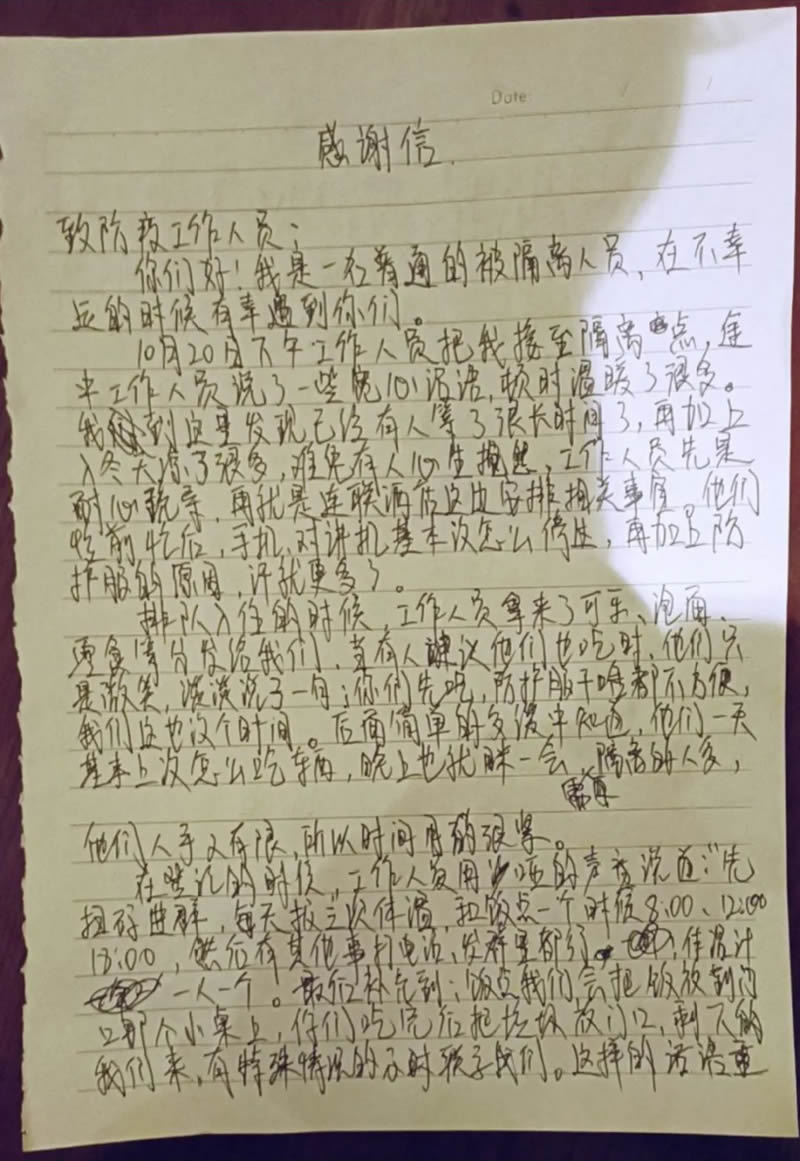 Date
感谢信.
致防疫工作人员：
你们好！我是一名普通的被隔离人员，在不幸
的时候有幸遇到你们。
10月20日下午工作人员把我接至隔离点，
工作人员说了一些暖心话语，顿时温暖了很多。
我到这里发现已经有人等了很长时间了，再加上
入冬天凉了很多，难免有人心生抱怨，工作人员先是
耐心疏导，再就是连联酒店这边安排相关事宜。他们
忙前忙后，手机、对讲机基本没怎么停过，再加上防
护服的原因，汗就更多了。
排队入住的时候，工作人员拿来了可乐、泡面、
面包等分发给我们，当有人建议他们也吃时，他们只
是微笑，淡淡说了一句：你们先吃，防护服干啥都不方便，
我们这也没个时间。后面简单的交谈中知道，他们一天
基本上没怎么吃东西，晚上也就眯一会，隔离的人多，
他们人手又有限，所以时间用的很紧。
在登记的时候，工作人员用沙哑的声音说道：“先
扫码进群，每天报三次体温，和饭点一个时候8:00、12:00
18:00，然后有其他事打电话、发群里都行，体温计
一人一个。最后补充到：饭点我们会把饭放到门
口那个小桌上，你们吃完后把垃圾放门口，剩下的
我们来，有特殊情况的及时联系我们。这样的话语重